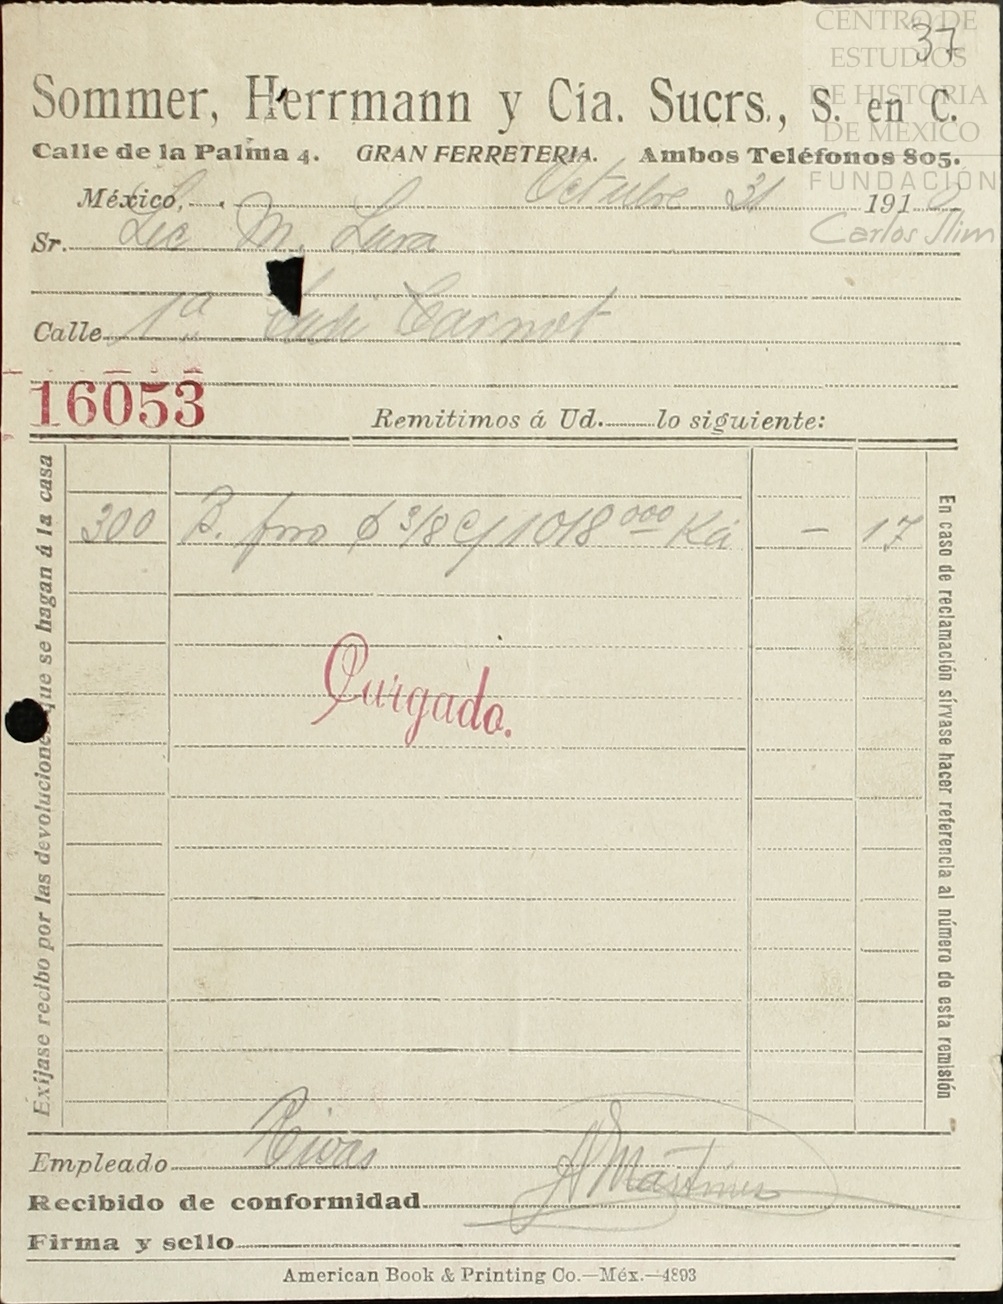 37
CENTRO DE
ESTUDIOS
DE HISTORIA
DE MÉXICO
FUNDACIÓN
Carlos Slim
Sommer, Herrmann y Cía. Sucrs., S. en C.
Calle de la Palma 4. GRAN FERRETERIA. Ambos Teléfonos 805.
México, Octubre 31 191
Sr. Lic M. Lura
Calle 1a Carnot
16053
Remitimos á Ud. lo siguiente:
300 B. fino 3/8 C/ 1018 000 Ka - 17
Exíjase recibo por las devoluciones que se hagan á la casa
En caso de reclamación sírvase hacer referencia al número de esta remisión
Empleado Rivas
Recibido de conformidad
Firma y sello
American Book & Printing Co.—Méx.—4893